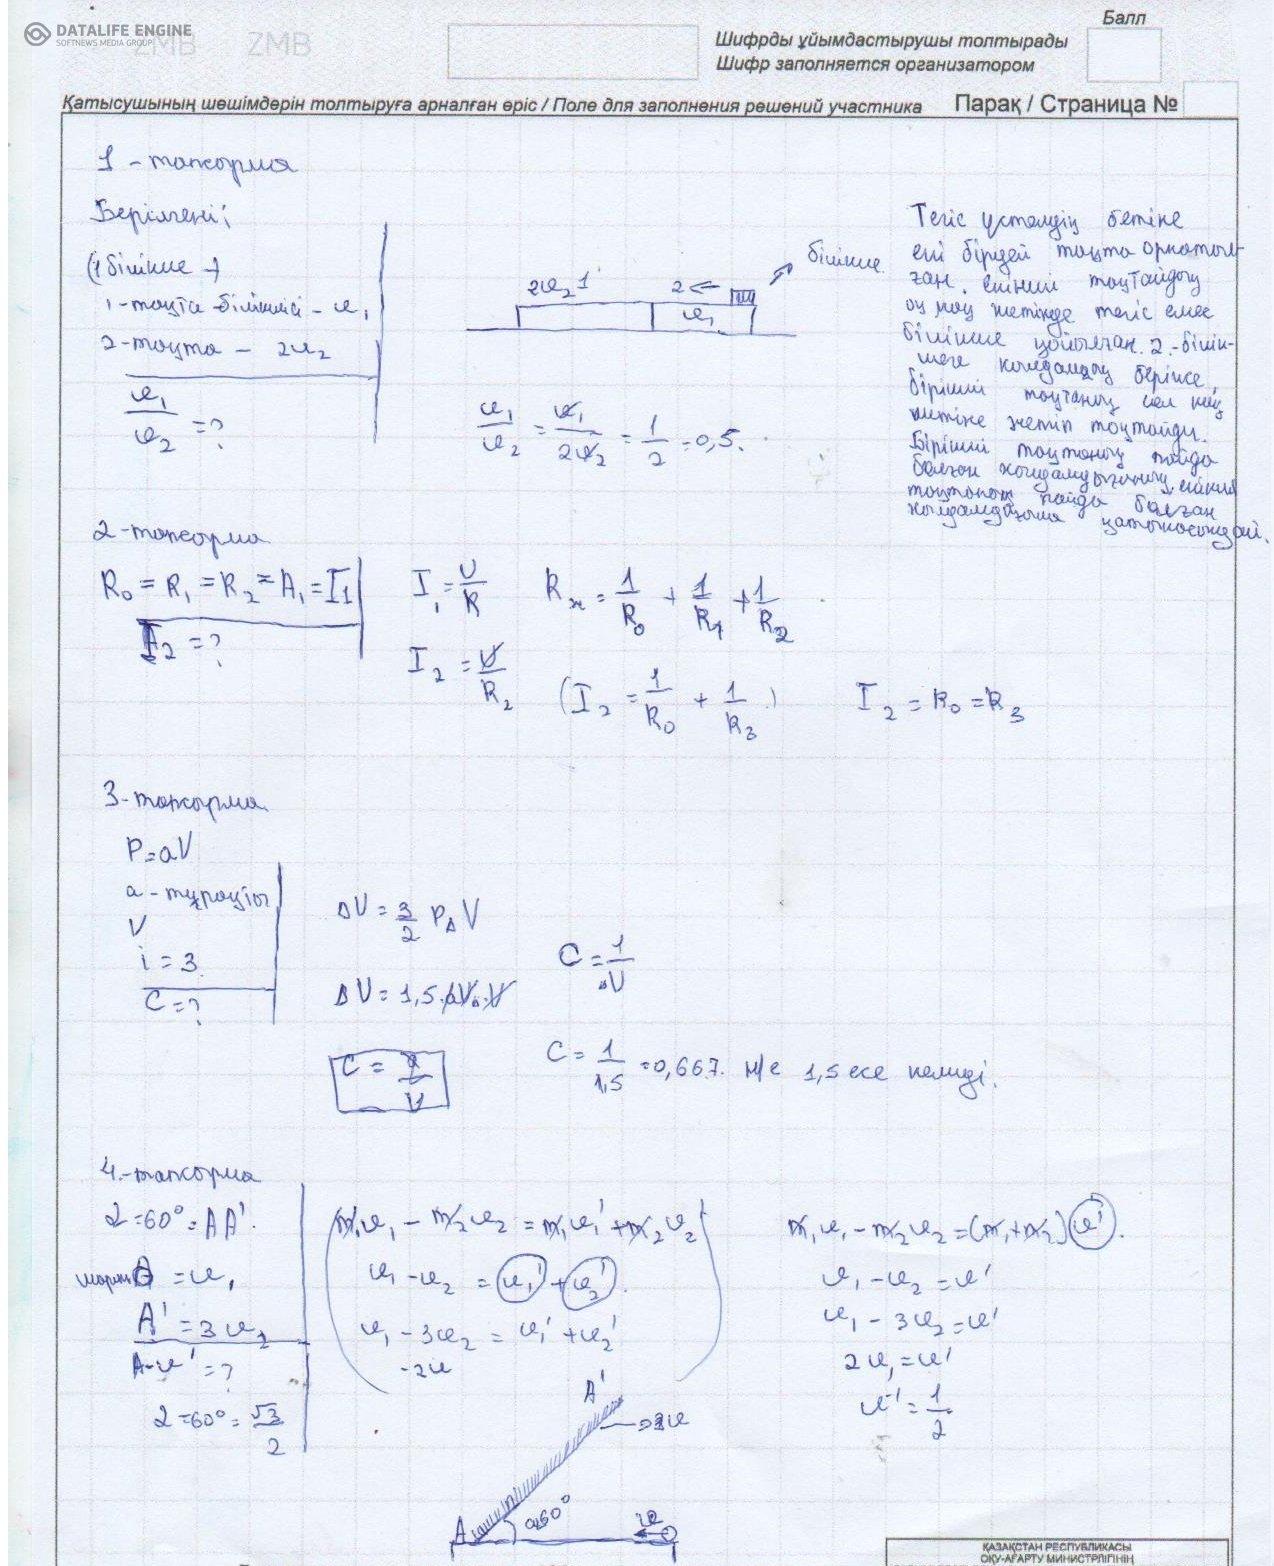 DATALIFE ENGINE
SOFTNEWS MEDIA GROUP
ZMB ZMB
Балл
Шифрды ұйымдастырушы толтырады
Шифр заполняется организатором
Қатысушының шешімдерін толтыруға арналған өріс / Поле для заполнения решений участника
Парақ / Страница №
1 - тапсырма
Берілгені:
1-тақта білікшесі - υ₁
2-тақта - 2υ₂
υ₁/υ₂ = ?
2υ₂ 1
2 ←
υ₁
білікше.
υ₁/υ₂ = υ₁/2υ₂ = 1/2 = 0,5.
Тегіс үстелдің бетіне
екі бірдей тақта орнатыл-
ған. екінші тақтайдың
оң жақ шетінде тегіс емес
білікше қойылған. 2.-білік-
шеге жылдамдық берілсе,
бірінші тақтаның сол жақ
шетіне жетіп тоқтайды.
Бірінші тақтаның пайда
болған жылдамдығының екінші
тақтаның пайда болған
жылдамдығына қатынасы қандай.
2-тапсырма
R₀ = R₁ = R₂ = A₁ = I₁
I₂ = ?
I₁ = U/R
Rₓ = 1/R₀ + 1/R₁ + 1/R₂
I₂ = U/R₂
(I₂ = 1/R₀ + 1/R₃)
I₂ = R₀ = R₃
3-тапсырма
P = aV
a - тұрақты
V
i = 3
C = ?
ΔU = 3/2 PΔV
C = 1/ΔV
ΔU = 1,5·aVΔ·V
C = a/V
C = 1/1,5 = 0,667. н/е 1,5 есе кемиді.
4.-тапсырма
α = 60° = AA'.
= υ₁
A' = 3υ₂
A-υ' = ?
α = 60° = √3/2
(m₁υ₁ - m₂υ₂ = m₁υ₁' + m₂υ₂'
υ₁ - υ₂ = υ₁' + υ₂'.
υ₁ - 3υ₂ = υ₁' + υ₂'
-2υ
)
m₁υ₁ - m₂υ₂ = (m₁+m₂) υ'.
υ₁ - υ₂ = υ'
υ₁ - 3υ₂ = υ'
2υ₁ = υ'
υ' = 1/2
A'
A
α60°
υ
ҚАЗАҚСТАН РЕСПУБЛИКАСЫ
ОҚУ-АҒАРТУ МИНИСТРЛІГІНІҢ